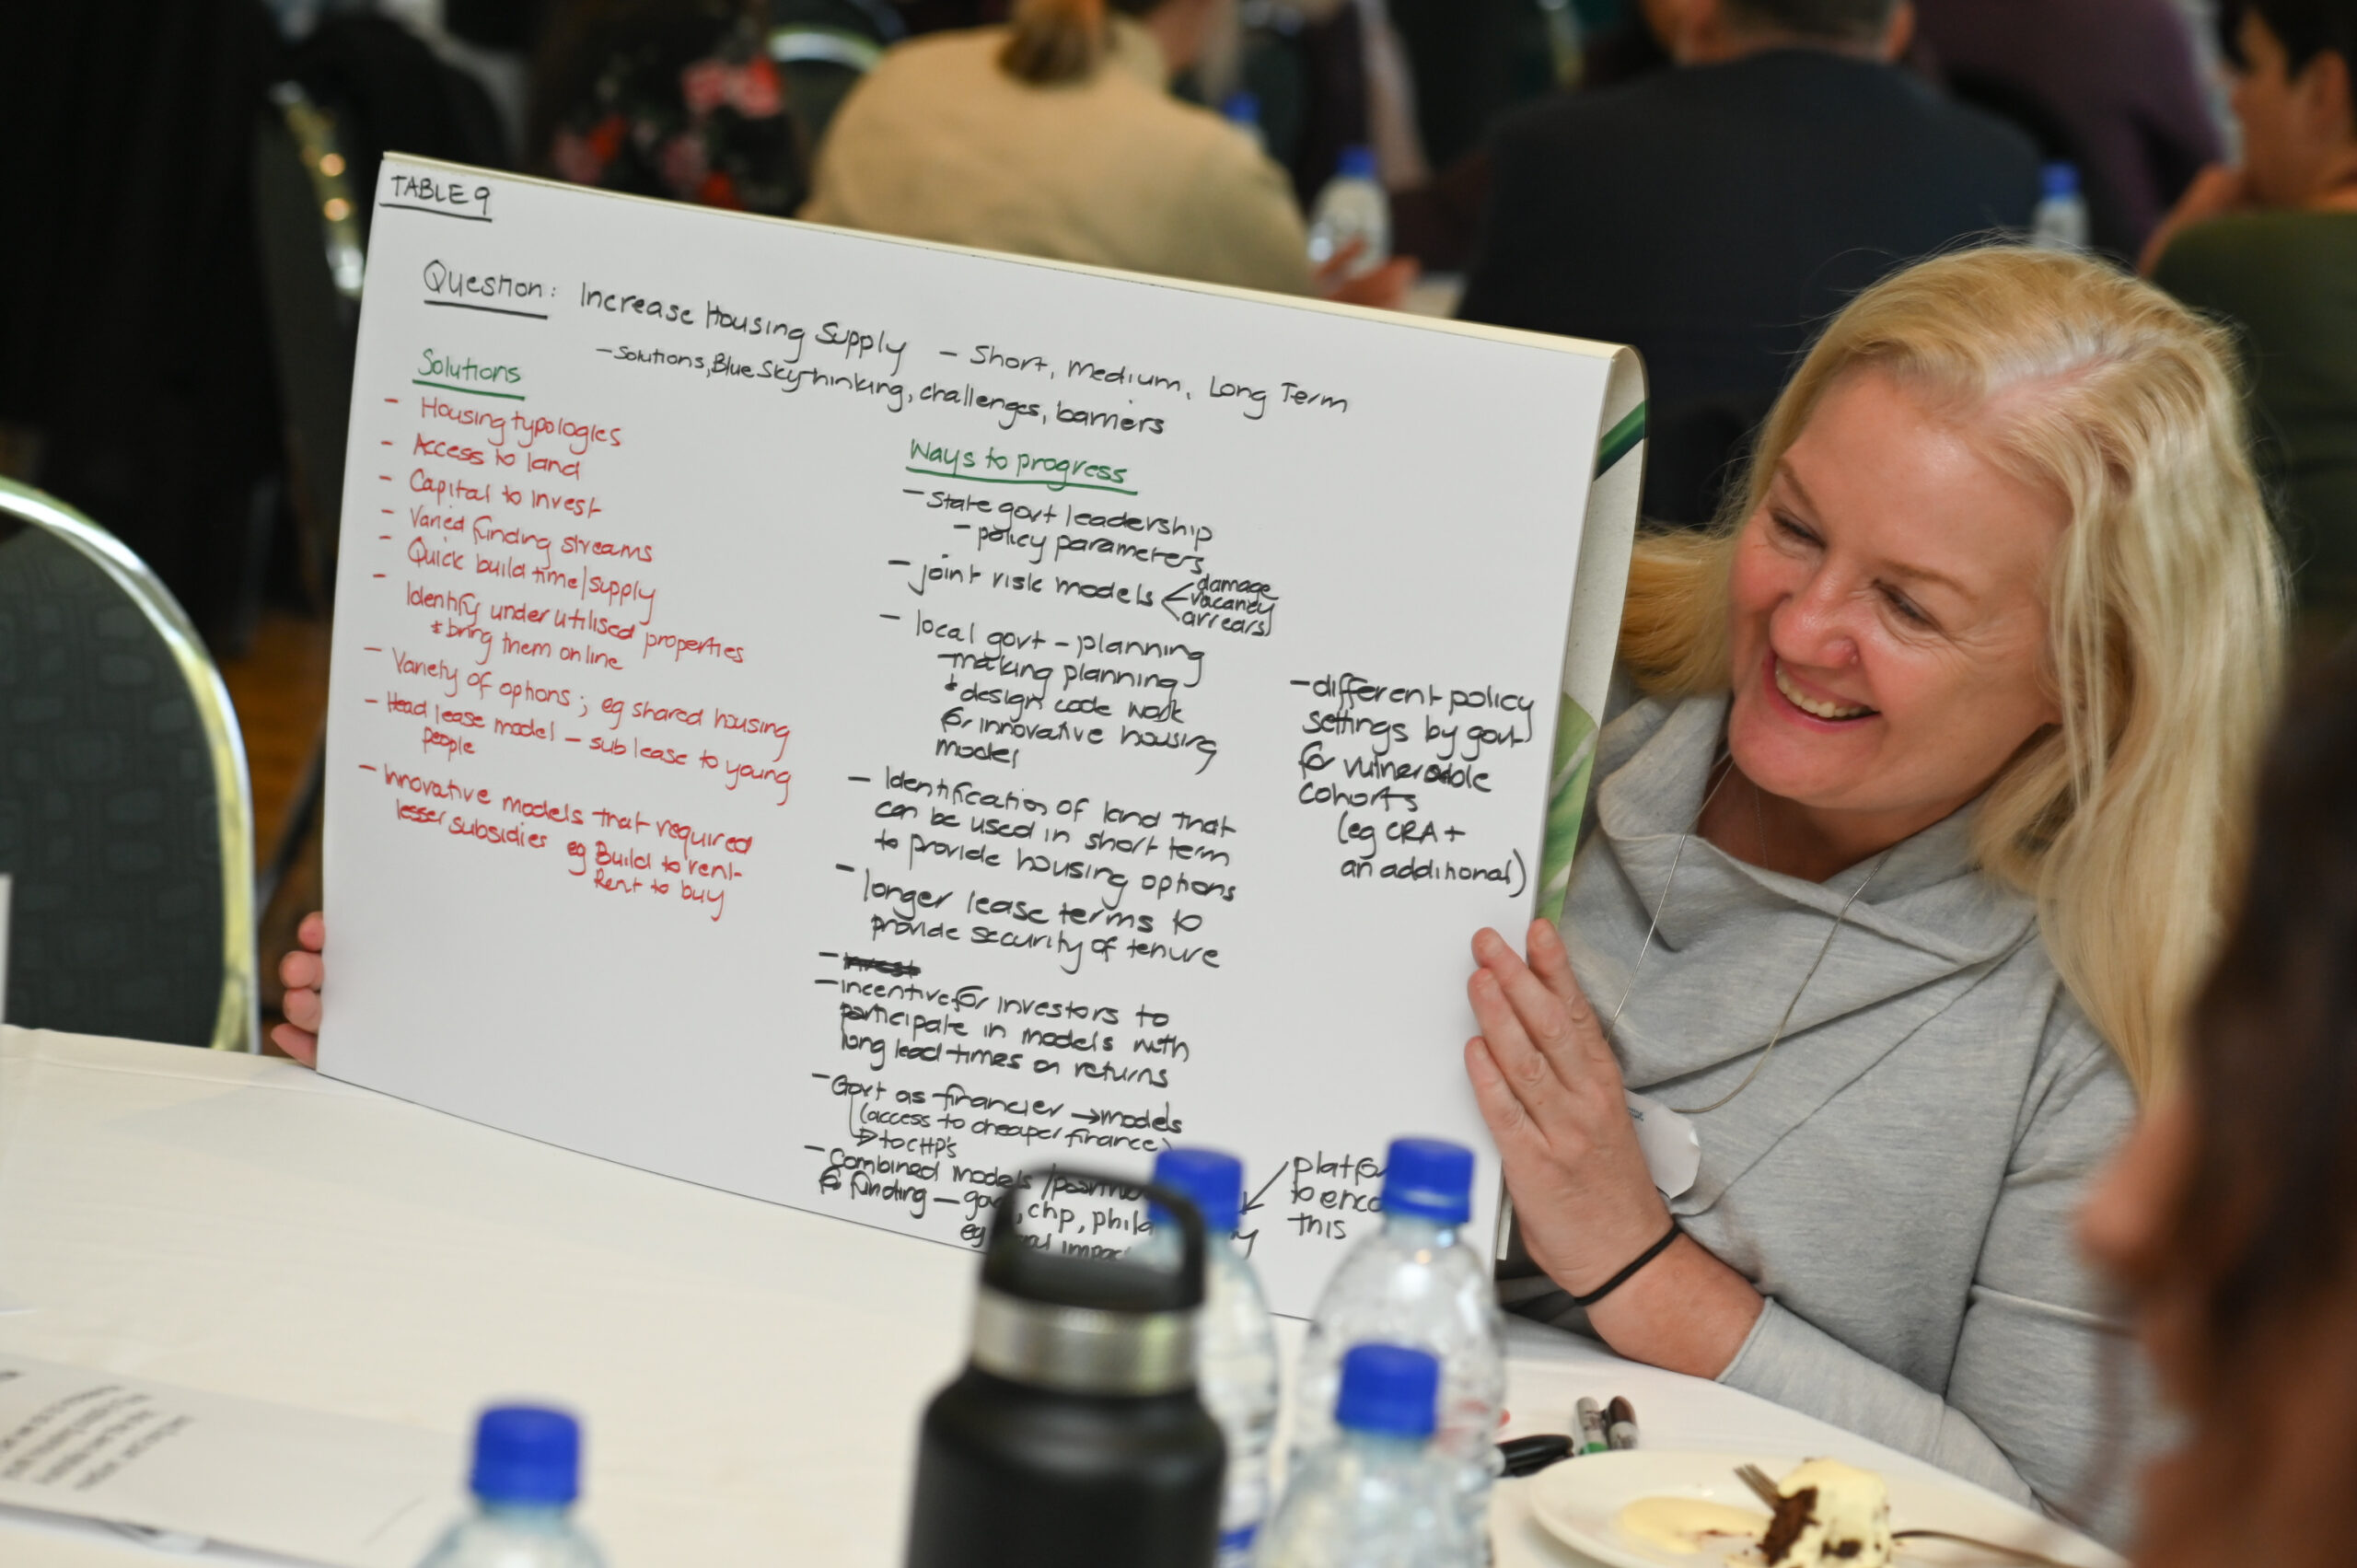 TABLE 9
Question: Increase Housing Supply - Short, Medium, Long Term
- Solutions, Blue Sky thinking, challenges, barriers
Solutions
- Housing typologies
- Access to land
- Capital to invest
- Varied funding streams
- Quick build time/supply
- Identify under utilised properties
+ bring them online
- Variety of options; eg shared housing
- Head lease model - sub lease to young
people
- Innovative models that required
lesser subsidies eg Build to rent
Rent to buy
Ways to progress
- State govt leadership
- policy parameters
- joint risk models < damage
vacancy
arrears
- local govt - planning
- making planning
+ design code work
for innovative housing
model
- Identification of land that
can be used in short term
to provide housing options
- longer lease terms to
provide security of tenure
- incentive for investors to
participate in models with
long lead times on returns
- Govt as financier → models
(access to cheaper finance)
→ to CHP's
- Combined models /
for funding - , chp,
eg
- different policy
settings by govt
for vulnerable
cohorts
(eg CRA +
an additional)
to
this